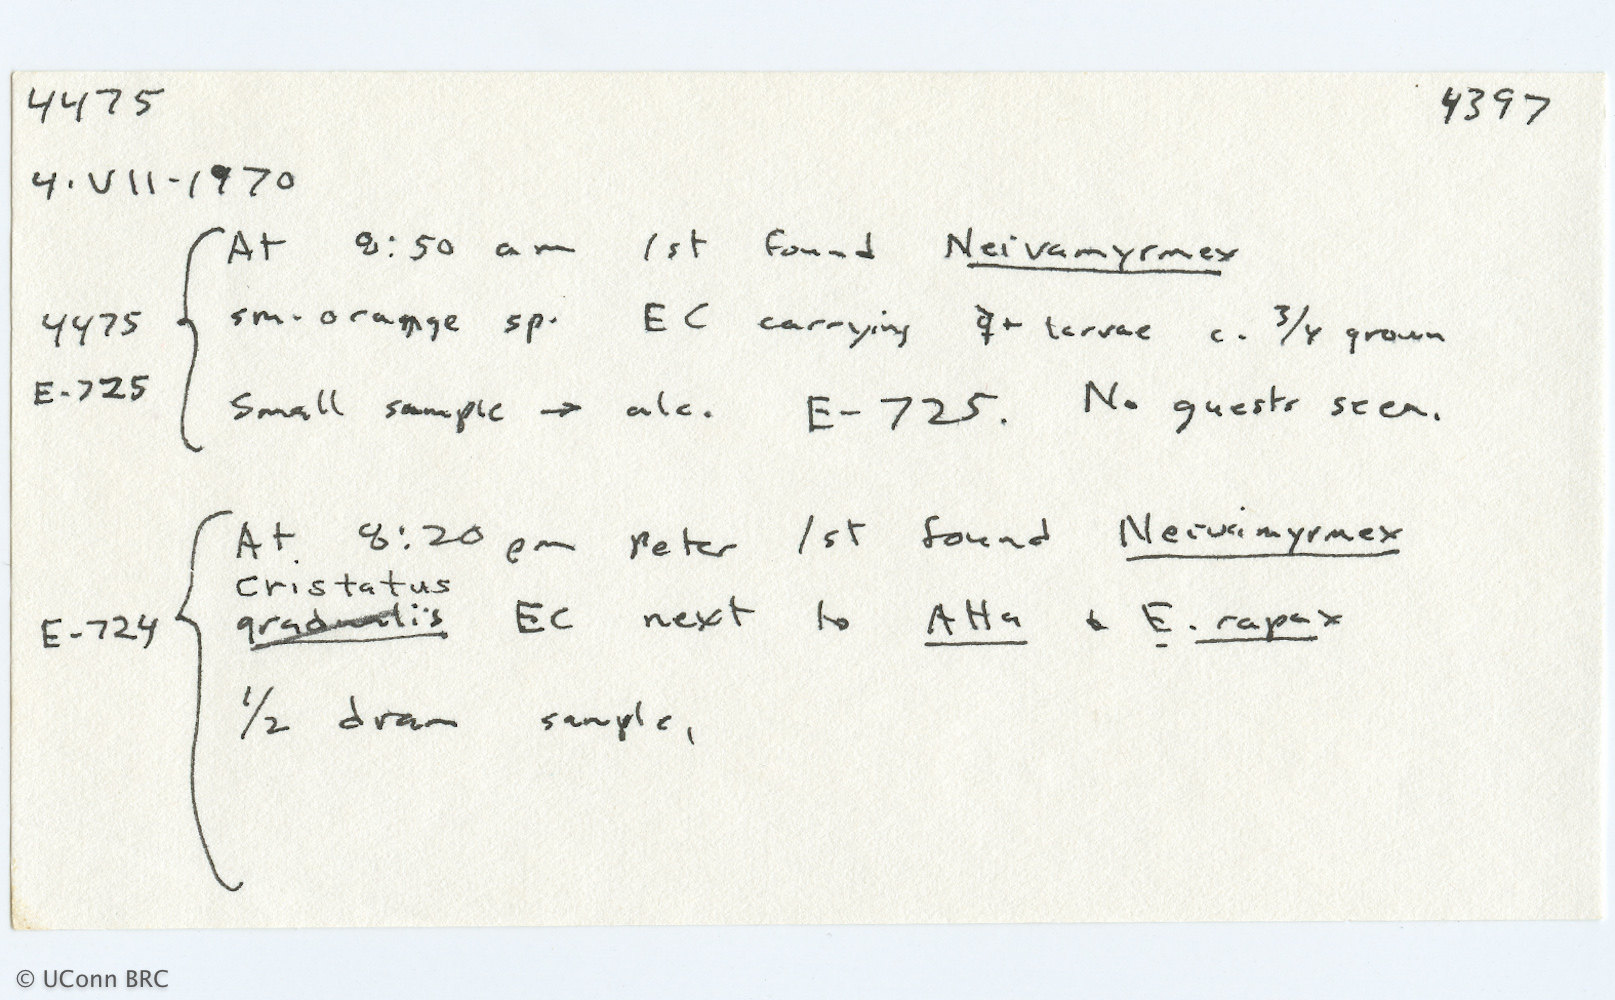 4475 4397
4.VII-1970
At 8:50 am 1st found Neivamyrmex
4475 sm. orange sp. EC carrying larvae c. 3/4 grown
E-725 Small sample → alc. E-725. No guests seen.
At 8:20 pm Peter 1st found Neivamyrmex
cristatus
E-724 gradualis EC next to Atta & E. rapax
1/2 dram sample,
© UConn BRC